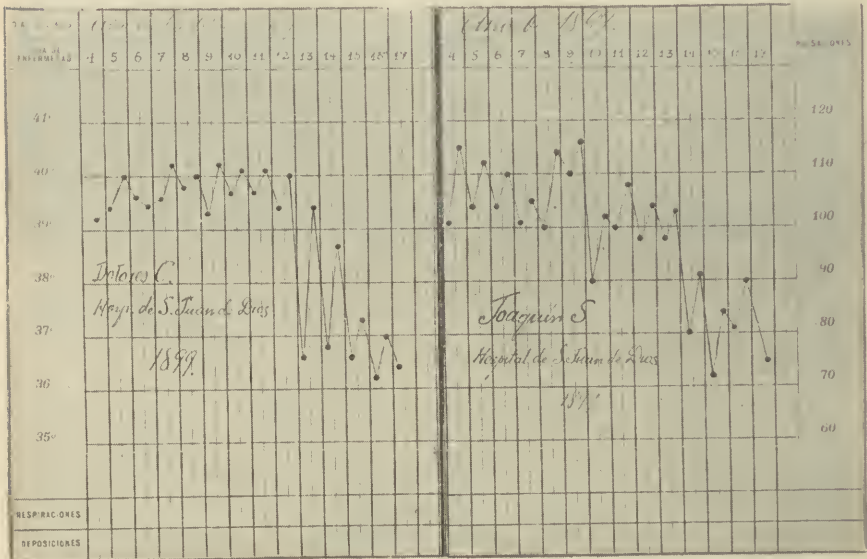 DIA DE
ENFERMEDAD 4 5 6 7 8 9 10 11 12 13 14 15 16 17
4 5 6 7 8 9 10 11 12 13 14 15 16 17
PULSACIONES
41°
40°
39°
38°
37°
36
35°
120
110
100
90
80
70
60
Dolores C.
Hosp. de S. Juan de Dios
1899.
Joaquin S
Hospital de S. Juan de Dios
RESPIRACIONES
DEPOSICIONES